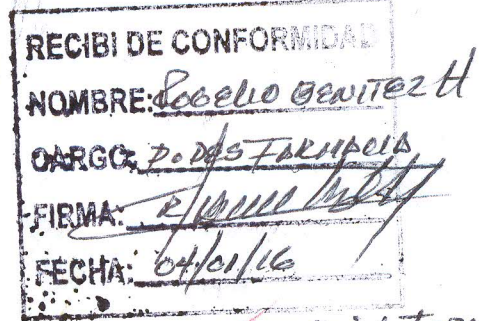 RECIBI DE CONFORMIDAD
NOMBRE: Rogelio Benitez H
CARGO: FARMACIA
FIRMA:
FECHA: 04/01/16